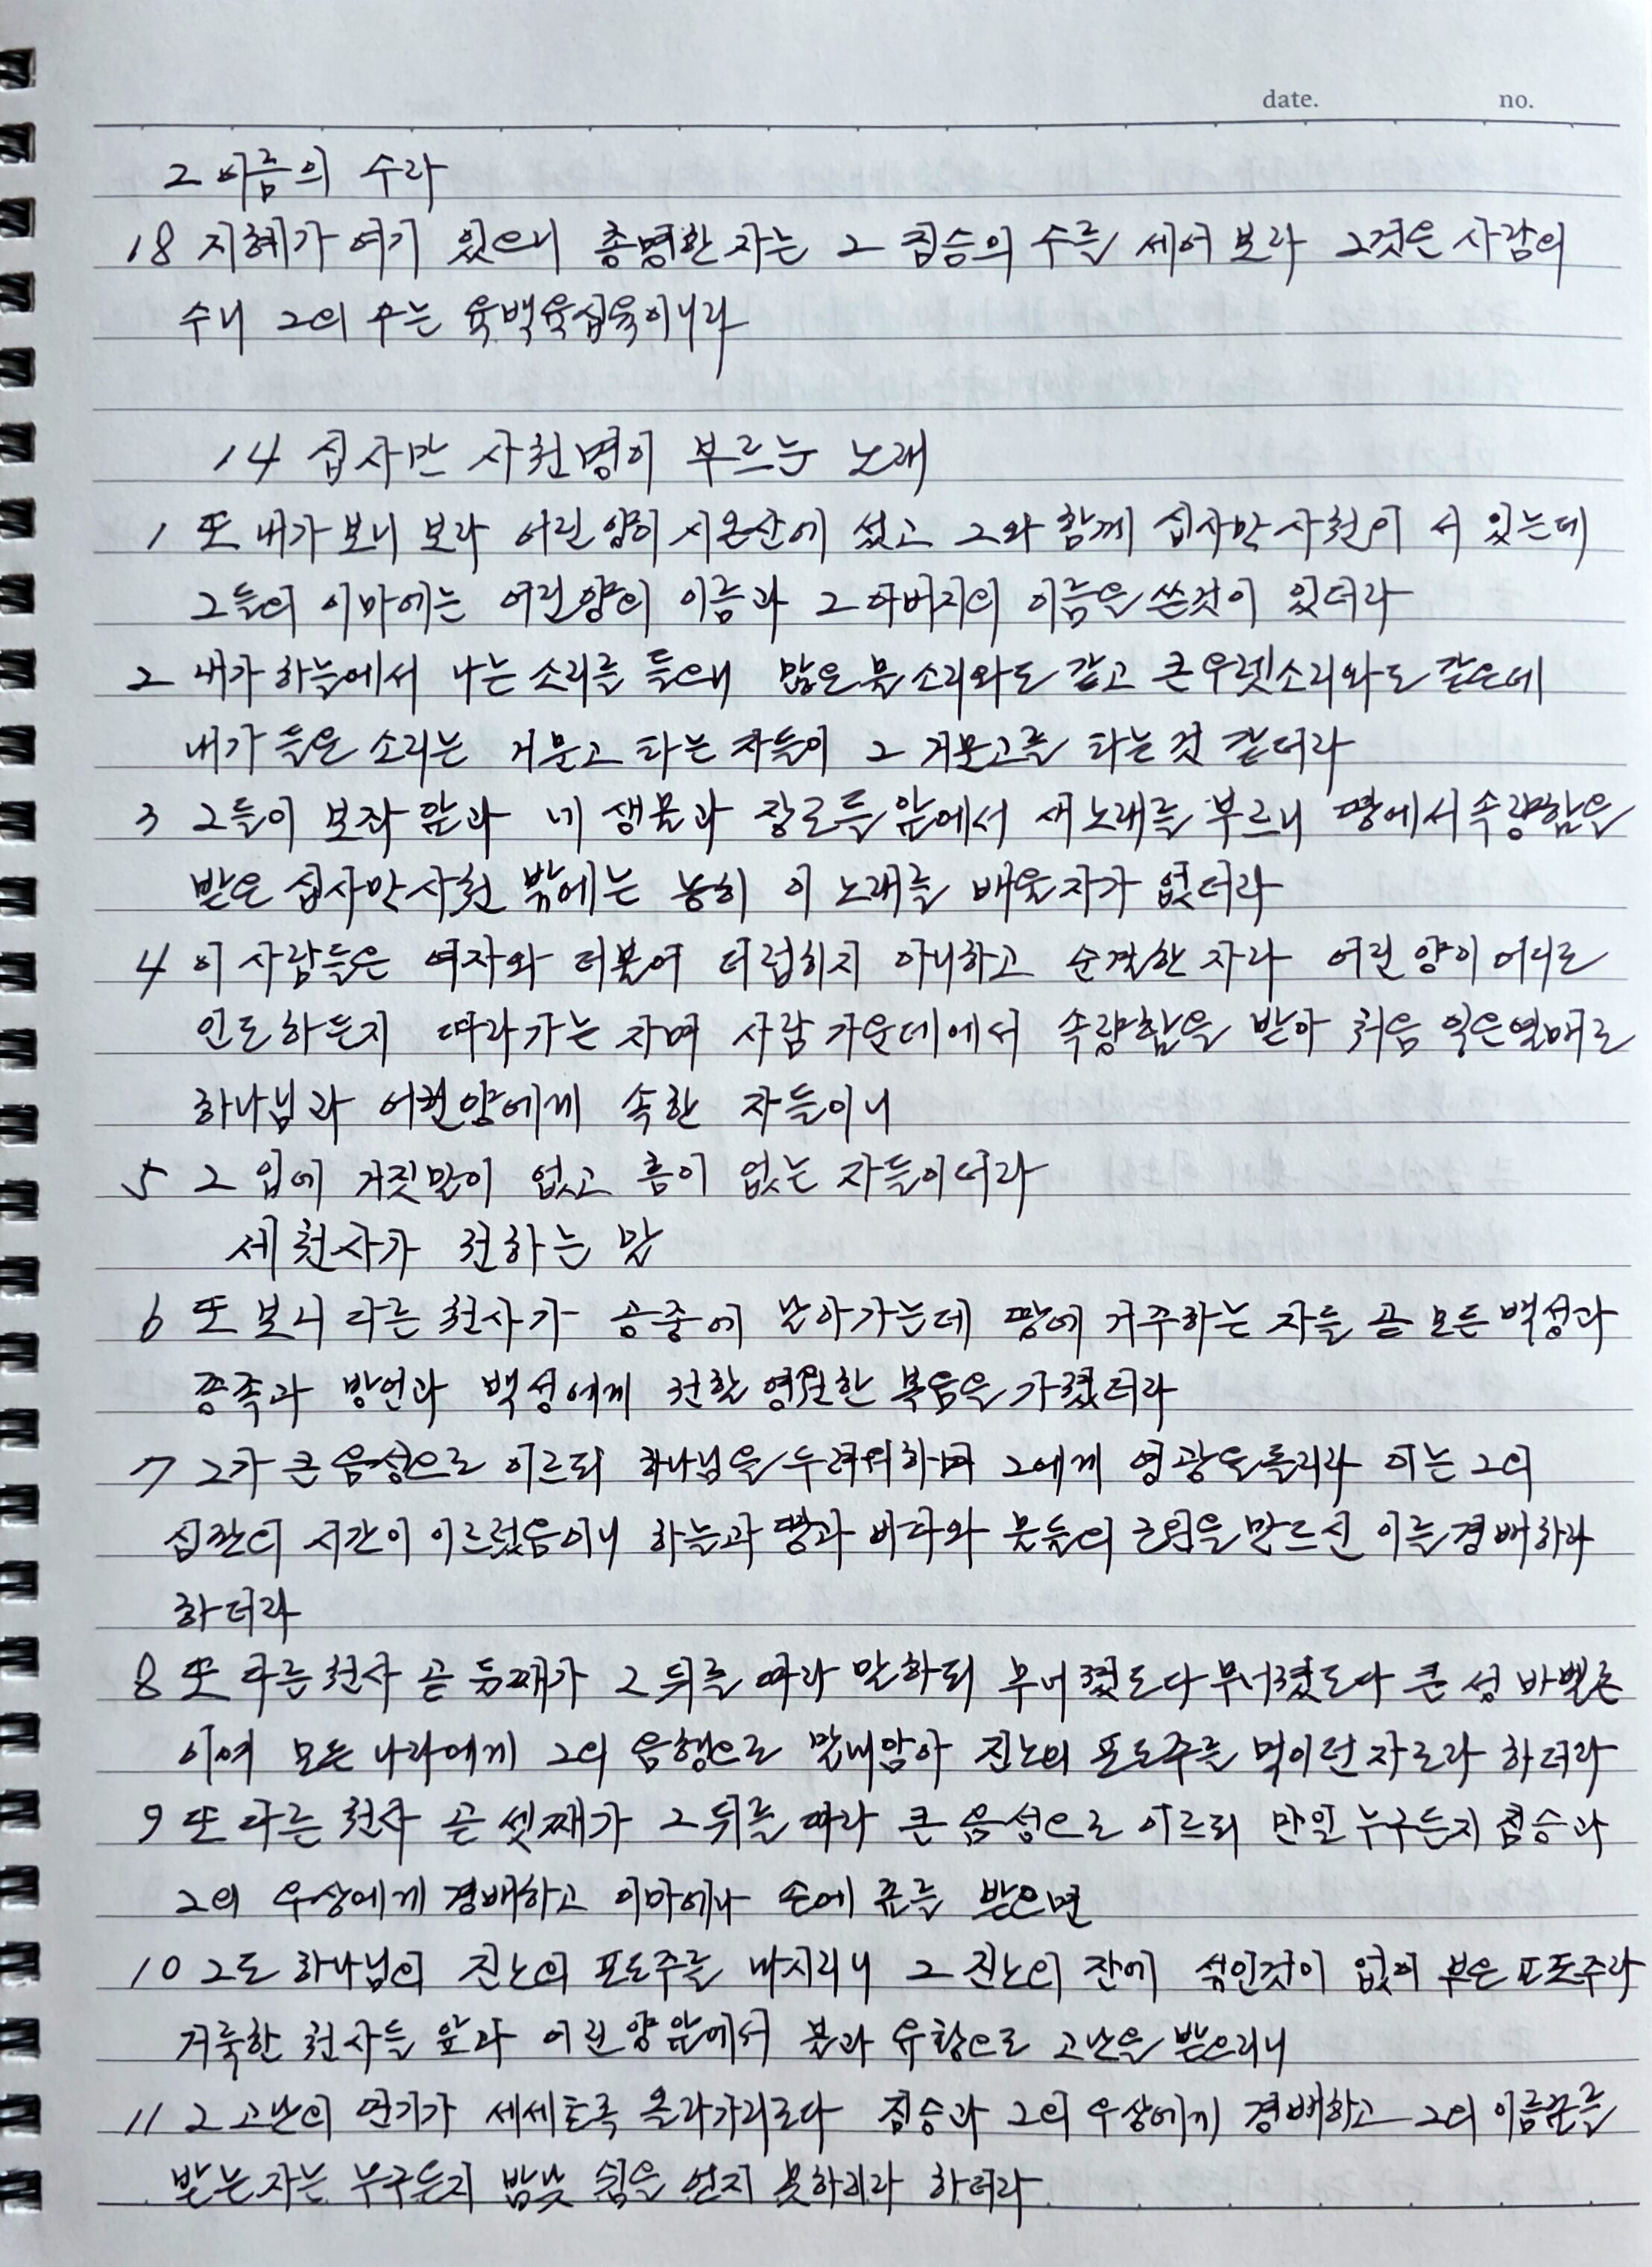 date. no.
그 이름의 수라
18 지혜가 여기 있으니 총명한 자는 그 짐승의 수를 세어 보라 그것은 사람의
수니 그의 수는 육백육십육이니라
14 십사만 사천명이 부르는 노래
1 또 내가 보니 보라 어린 양이 시온산에 섰고 그와 함께 십사만 사천이 서 있는데
그들의 이마에는 어린양의 이름과 그 아버지의 이름을 쓴것이 있더라
2 내가 하늘에서 나는 소리를 들으니 많은 물 소리와도 같고 큰 우렛소리와도 같은데
내가 들은 소리는 거문고 타는 자들이 그 거문고를 타는것 같더라
3 그들이 보좌 앞과 네 생물과 장로들 앞에서 새 노래를 부르니 땅에서 속량함을
받은 십사만 사천 밖에는 능히 이 노래를 배울자가 없더라
4 이 사람들은 여자와 더불어 더럽히지 아니하고 순결한 자라 어린 양이 어디로
인도하든지 따라가는 자며 사람 가운데에서 속량함을 받아 처음 익은열매로
하나님과 어린양에게 속한 자들이니
5 그 입에 거짓말이 없고 흠이 없는 자들이더라
세 천사가 전하는 말
6 또 보니 다른 천사가 공중에 날아가는데 땅에 거주하는 자들 곧 모든 백성과
종족과 방언과 백성에게 전할 영원한 복음을 가졌더라
7 그가 큰 음성으로 이르되 하나님을 두려워하며 그에게 영광을 돌리라 이는 그의
심판의 시간이 이르렀음이니 하늘과 땅과 바다와 물들의 근원을 만드신 이를 경배하라
하더라
8 또 다른 천사 곧 둘째가 그 뒤를 따라 말하되 무너졌도다 무너졌도다 큰 성 바벨론
이여 모든 나라에게 그의 음행으로 말미암아 진노의 포도주를 먹이던 자로라 하더라
9 또 다른 천사 곧 셋째가 그 뒤를 따라 큰 음성으로 이르되 만일 누구든지 짐승과
그의 우상에게 경배하고 이마에나 손에 표를 받으면
10 그도 하나님의 진노의 포도주를 마시리니 그 진노의 잔에 섞인것이 없이 부은 포도주라
거룩한 천사들 앞과 어린 양 앞에서 불과 유황으로 고난을 받으리니
11 그 고난의 연기가 세세토록 올라가리로다 짐승과 그의 우상에게 경배하고 그의 이름표를
받는 자는 누구든지 밤낮 쉼을 얻지 못하리라 하더라